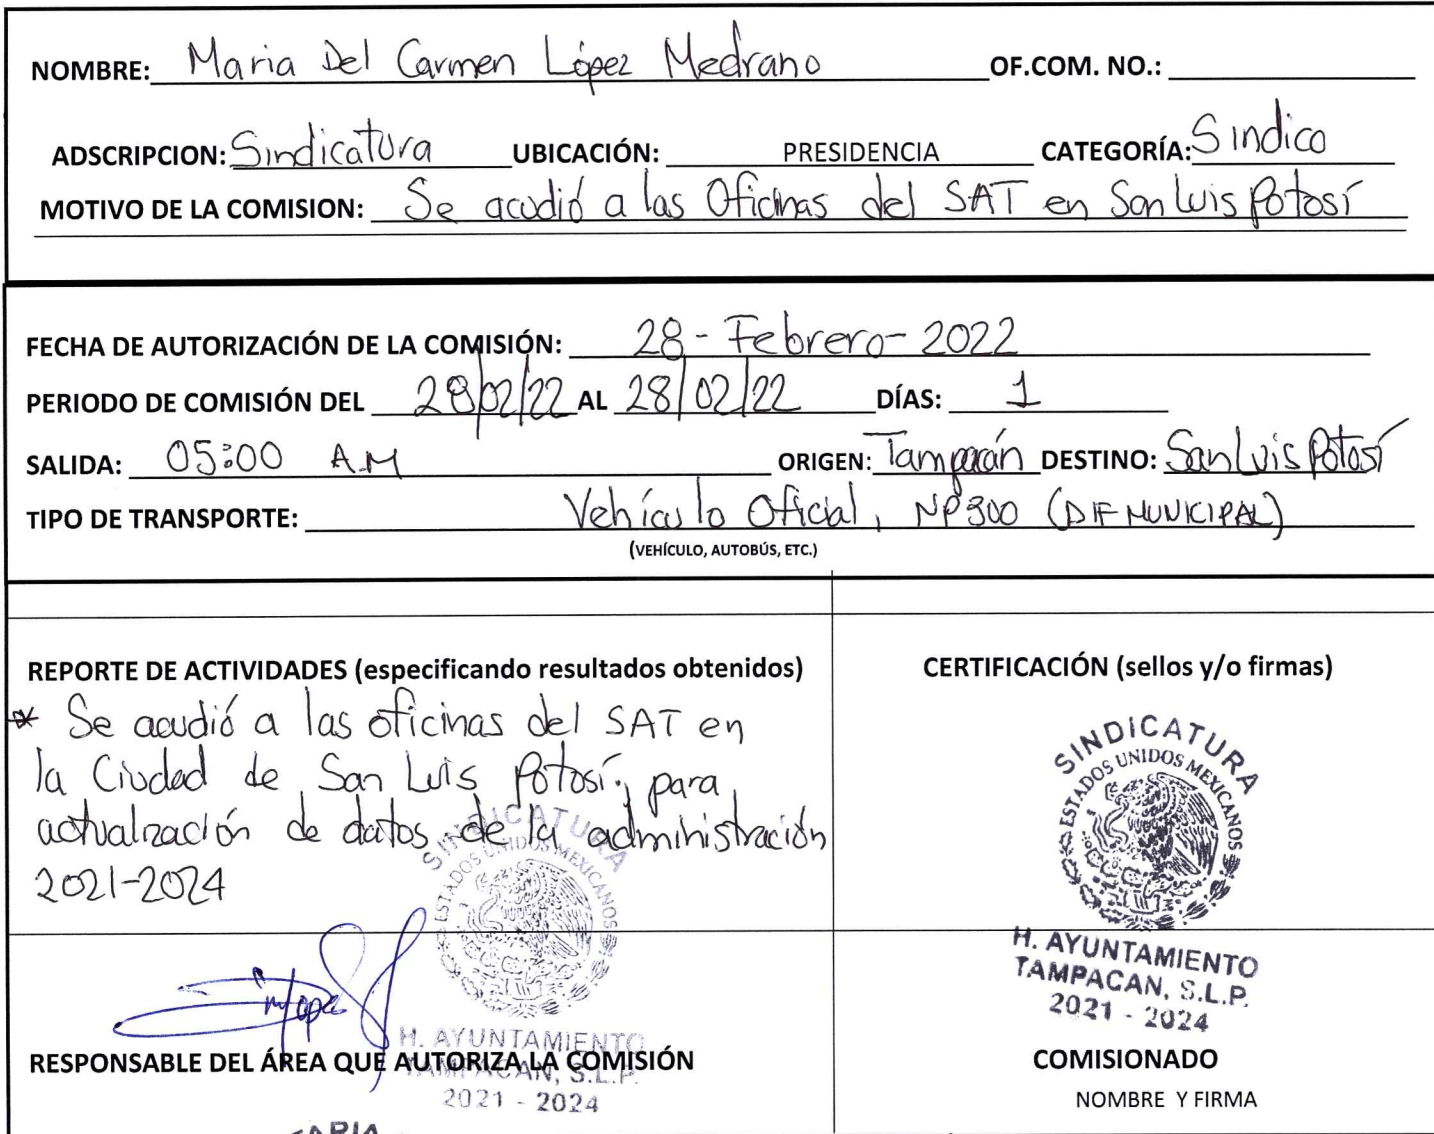 NOMBRE: Maria Del Carmen López Medrano OF.COM. NO.:
ADSCRIPCION: Sindicatura UBICACIÓN: PRESIDENCIA CATEGORÍA: Sindico
MOTIVO DE LA COMISION: Se acudió a las Oficinas del SAT en San Luis Potosí
FECHA DE AUTORIZACIÓN DE LA COMISIÓN: 28-Febrero-2022
PERIODO DE COMISIÓN DEL 28/02/22 AL 28/02/22 DÍAS: 1
SALIDA: 05:00 A.M ORIGEN: Tampacán DESTINO: San Luis Potosí
TIPO DE TRANSPORTE: Vehículo Oficial, NP300 (DIF MUNICIPAL)
(VEHÍCULO, AUTOBÚS, ETC.)
REPORTE DE ACTIVIDADES (especificando resultados obtenidos)
* Se acudió a las oficinas del SAT en
la Ciudad de San Luis Potosí, para
actualización de datos de la administración
2021-2024
SINDICATURA
ESTADOS UNIDOS MEXICANOS
H. AYUNTAMIENTO
TAMPACAN, S.L.P.
2021 - 2024
RESPONSABLE DEL ÁREA QUE AUTORIZA LA COMISIÓN
CERTIFICACIÓN (sellos y/o firmas)
SINDICATURA
ESTADOS UNIDOS MEXICANOS
H. AYUNTAMIENTO
TAMPACAN, S.L.P.
2021 - 2024
COMISIONADO
NOMBRE Y FIRMA